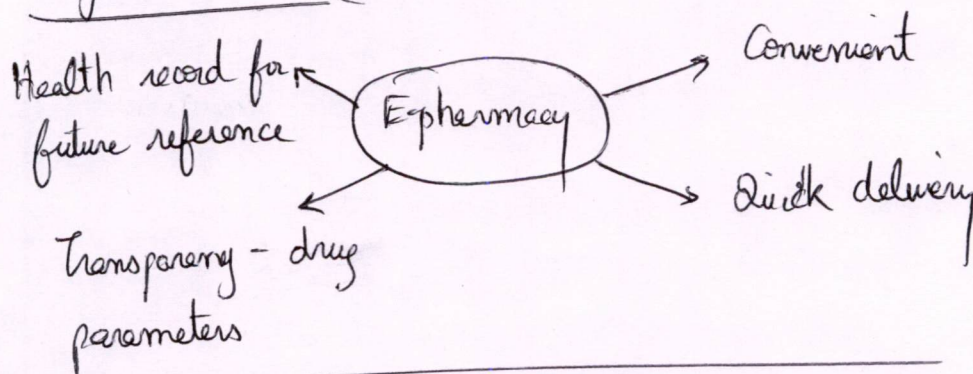 Health record for
future reference
E-pharmacy
Convenient
Quick delivery
Transparany - drug
parameters